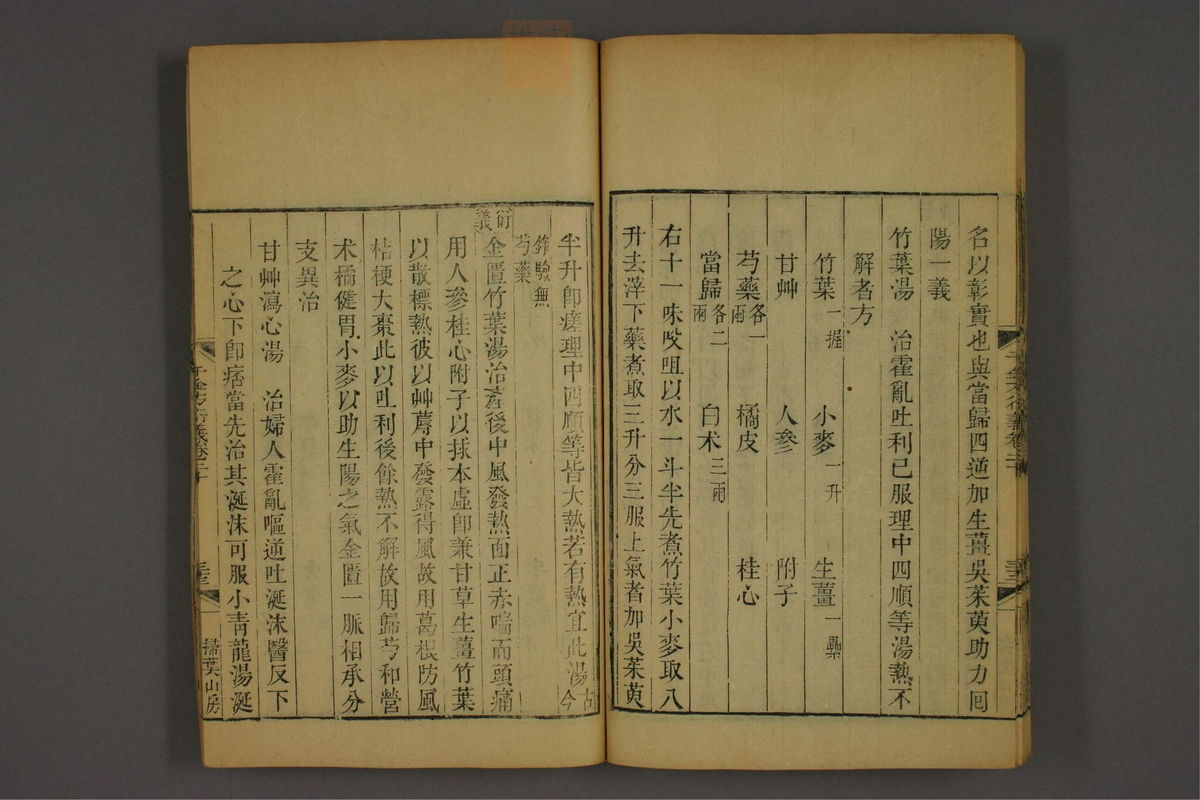 名以彰實也與當歸四逆加生薑吳茱萸助力囘
陽一義
竹葉湯　治霍亂吐利已服理中四順等湯熱不
解者方
竹葉一握　小麥一升　生薑一纍
甘艸　人參　附子
芍藥各一兩　橘皮　桂心
當歸各二兩　白术三兩
右十一味㕮咀以水一斗半先煮竹葉小麥取八
升去滓下藥煮取三升分三服上氣者加吳茱萸
半升卽瘥理中四順等皆大熱若有熱宜此湯古今
錄驗無
芍藥
衍義
金匱竹葉湯治產後中風發熱面正赤喘而頭痛
用人參桂心附子以捄本虛卽兼甘草生薑竹葉
以散標熱彼以艸蓐中發露得風故用葛根防風
桔梗大棗此以吐利後餘熱不解故用歸芍和營
术橘健胃小麥以助生陽之氣金匱一脈相承分
支異治
甘艸瀉心湯　治婦人霍亂嘔逆吐涎沫醫反下
之心下卽痞當先治其涎沫可服小青龍湯涎
千金方衍義卷二十
掃葉山房